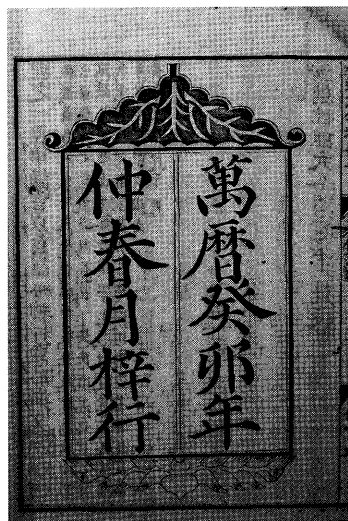 萬曆癸卯年
仲春月梓行